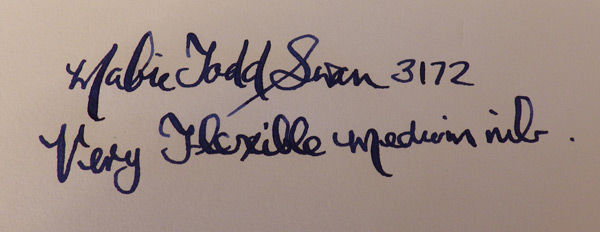 Mabie Todd Swan 3172
Very Flexible medium nib.